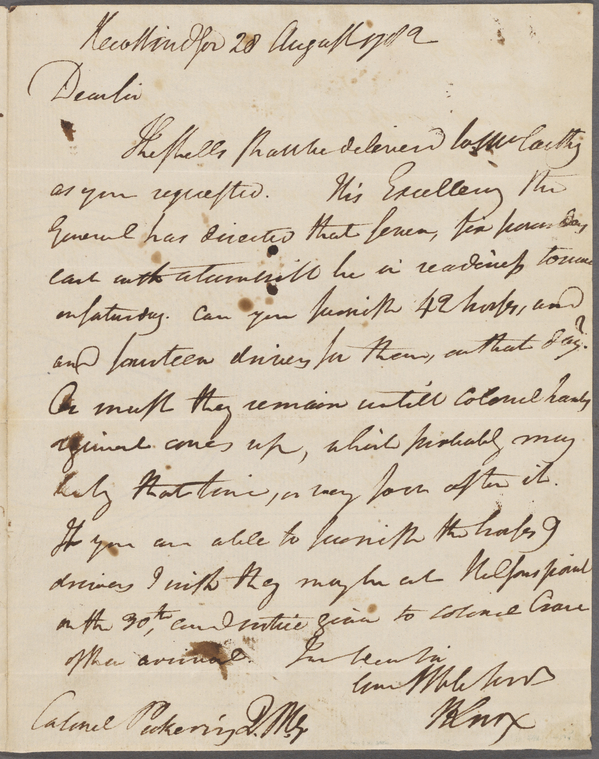 New Windsor 28 August 1782
Dear Sir
The shells shall be delivered to Mr
as you requested. His Excellency the
General has directed that seven, six pounders
each with a tumbrill be in readiness to move
on Saturday. Can you furnish 42 horses, and
and fourteen drivers for them, on that day?
Or must they remain untill Colonel
regiment comes up, which probably may
be by that time, or very soon after it.
If you are able to furnish the horses &
drivers I wish they may be at Nelsons point
on the 30th, and notice given to Colonel Crane
of their arrival. I am Dear Sir
Your Hble Servt
HKnox
Colonel Pickering Q. M. G.